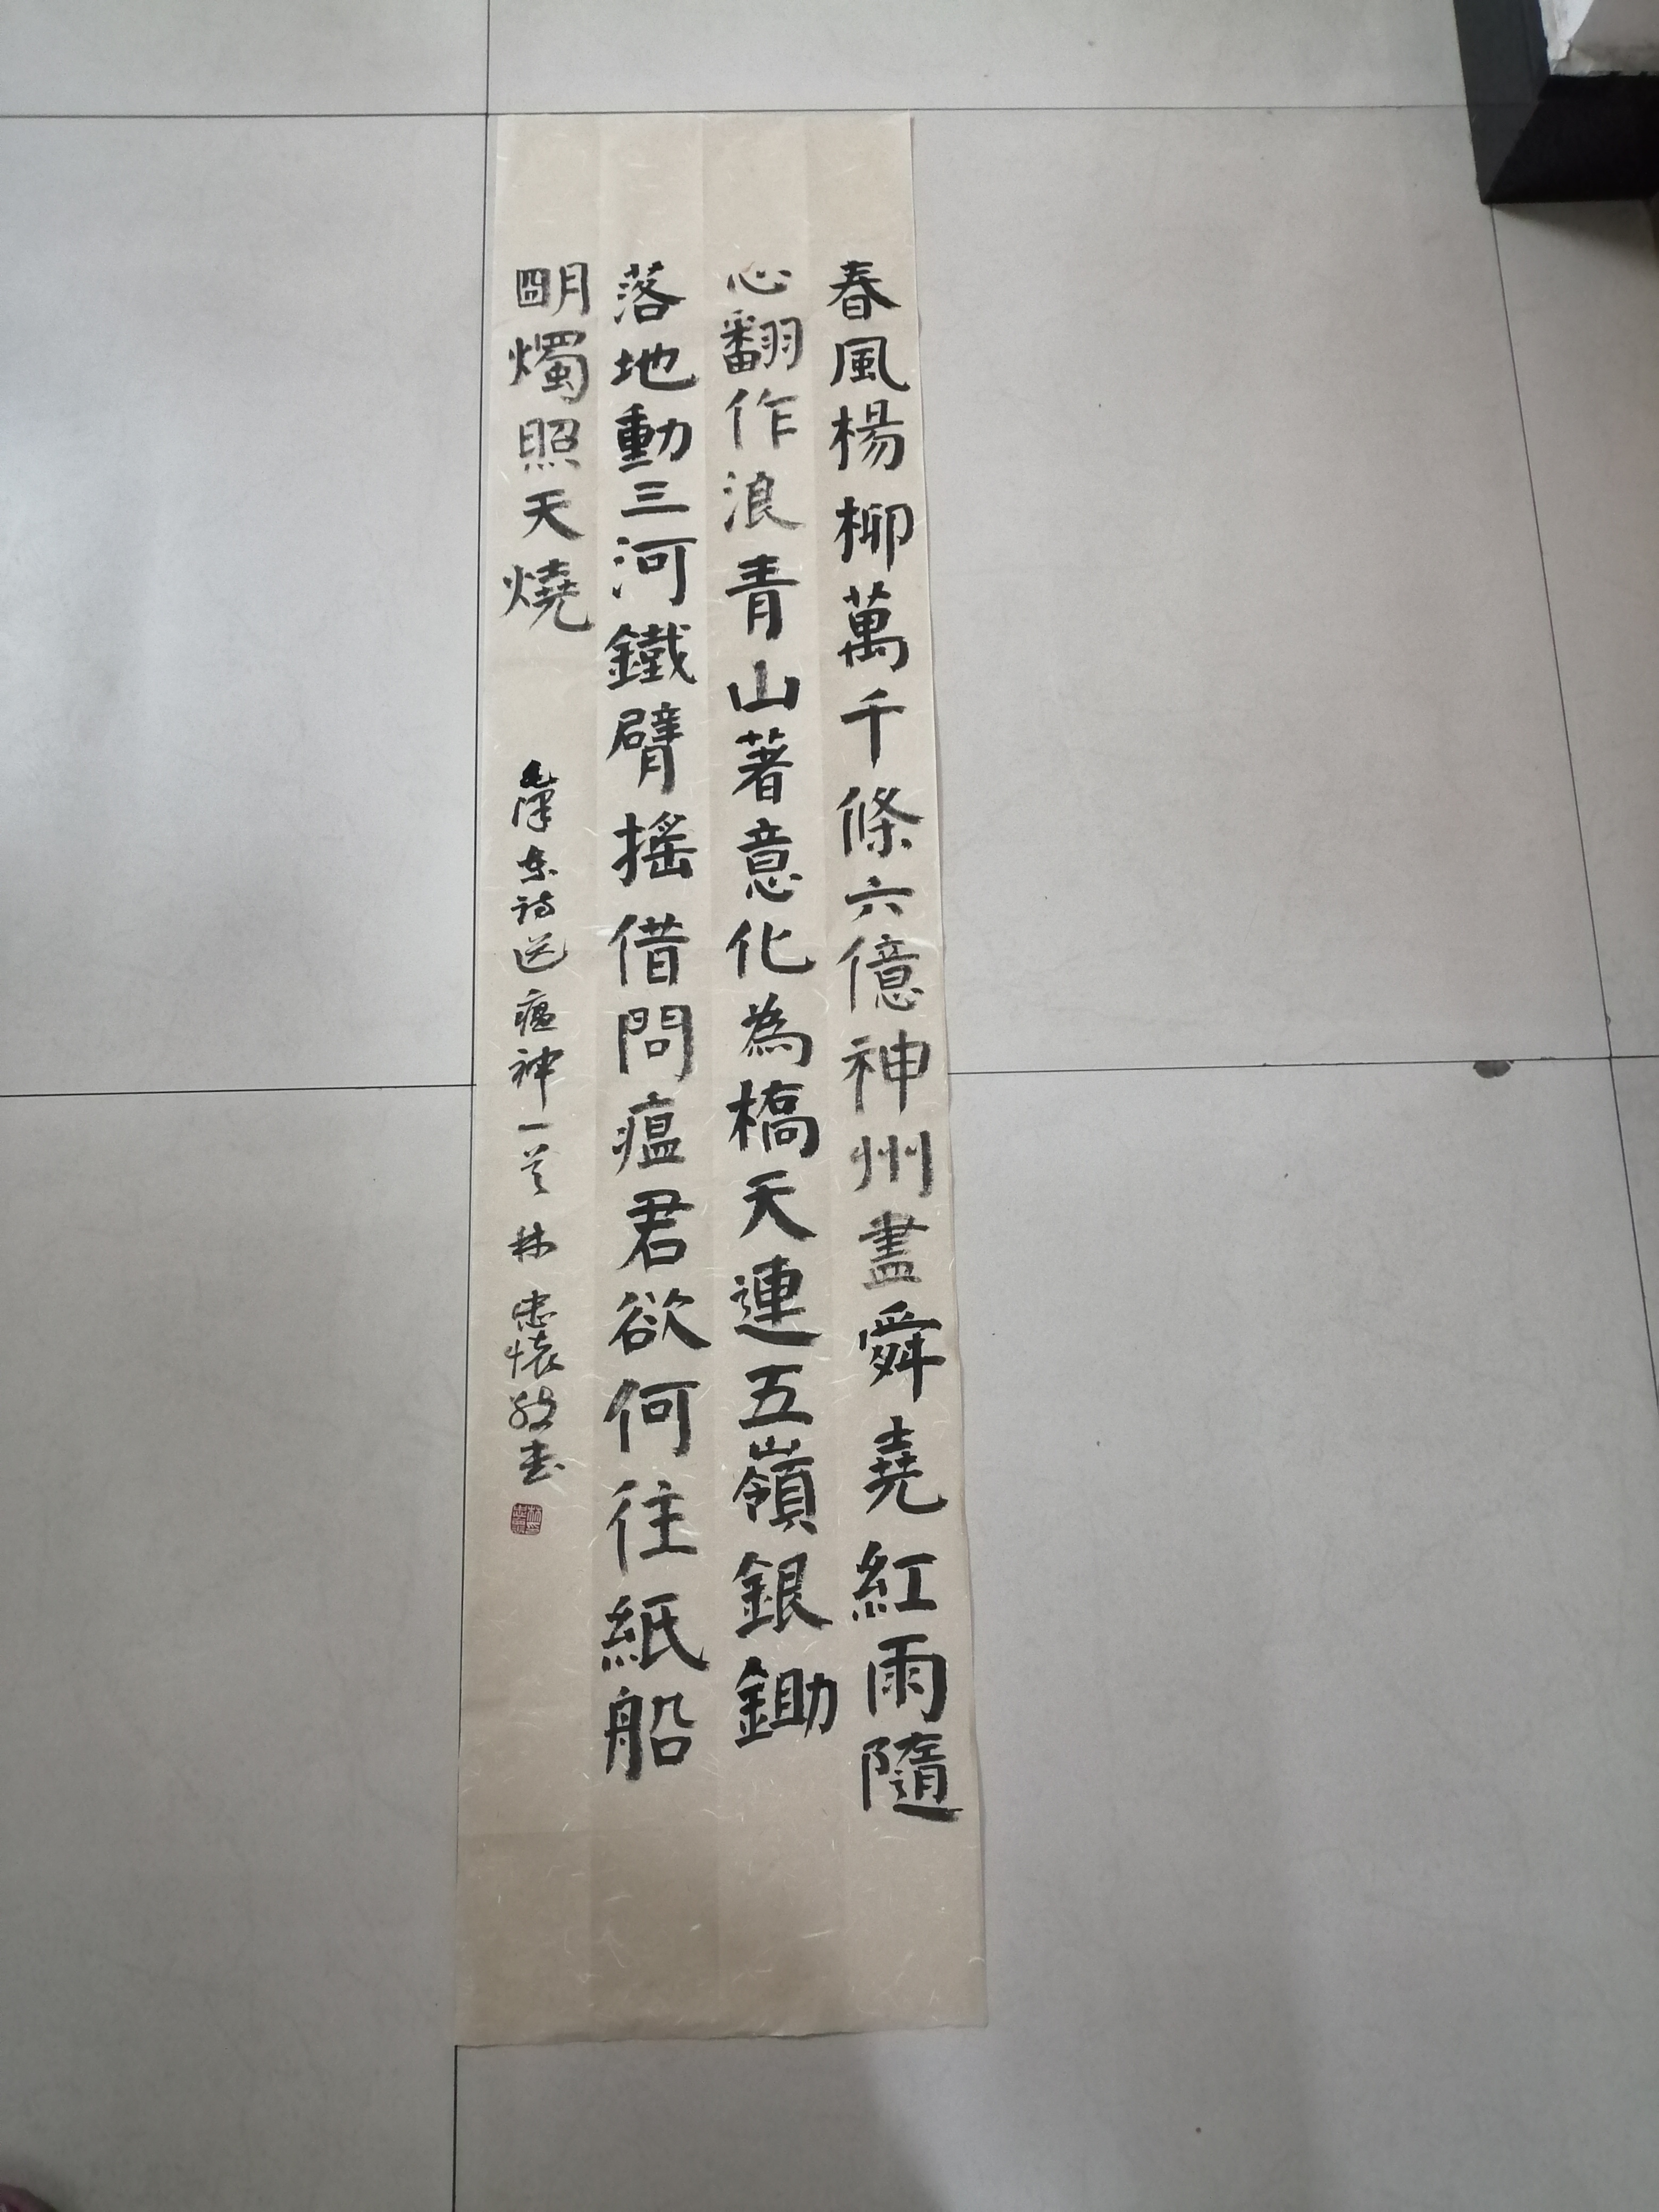 春風楊柳萬千條六億神州盡舜堯紅雨隨
心翻作浪青山著意化為橋天連五嶺銀鋤
落地動三河鐵臂搖借問瘟君欲何往紙船
明燭照天燒
毛澤东诗送瘟神一首 林忠懷敬书